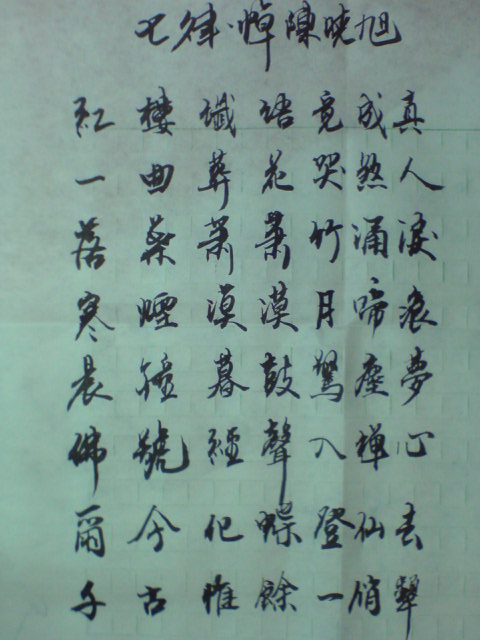 七律·悼陳曉旭
紅樓讖語竟成真
一曲葬花哭煞人
落葉蕭蕭竹涌淚
寒煙漠漠月啼痕
晨鐘暮鼓驚塵夢
佛號經聲入禪心
爾今化蝶登仙去
千古惟餘一俏顰